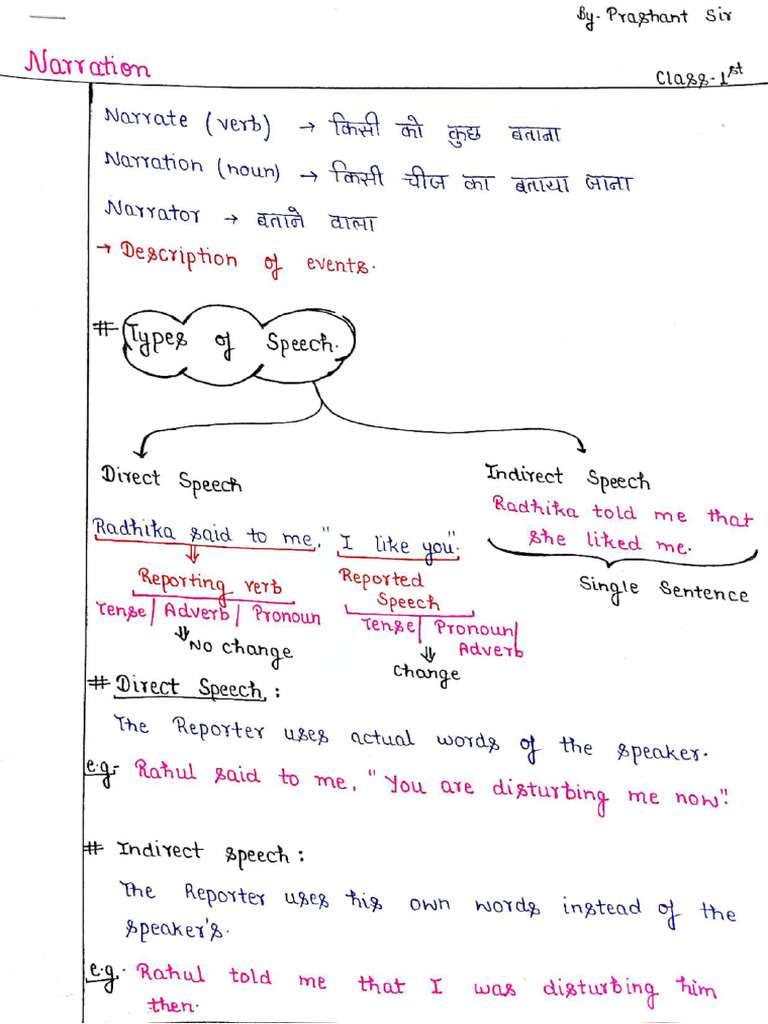 By- Prashant Sir
Narration
Class-1st
Narrate (verb) → किसी को कुछ बताना
Narration (noun) → किसी चीज का बताया जाना
Narrator → बताने वाला
→ Description of events.
# Types of Speech.
Direct Speech
Indirect Speech
Radhika told me that
she liked me.
Single Sentence
Radhika said to me, "I like you".
Reporting verb
Tense/ Adverb/ Pronoun
⇓ No change
Reported
Speech
Tense/ Pronoun/
Adverb
⇓
Change
# Direct Speech :
The Reporter uses actual words of the speaker.
e.g- Rahul said to me, "You are disturbing me now".
# Indirect speech :
The Reporter uses his own words instead of the
speaker's.
e.g. Rahul told me that I was disturbing him
then.